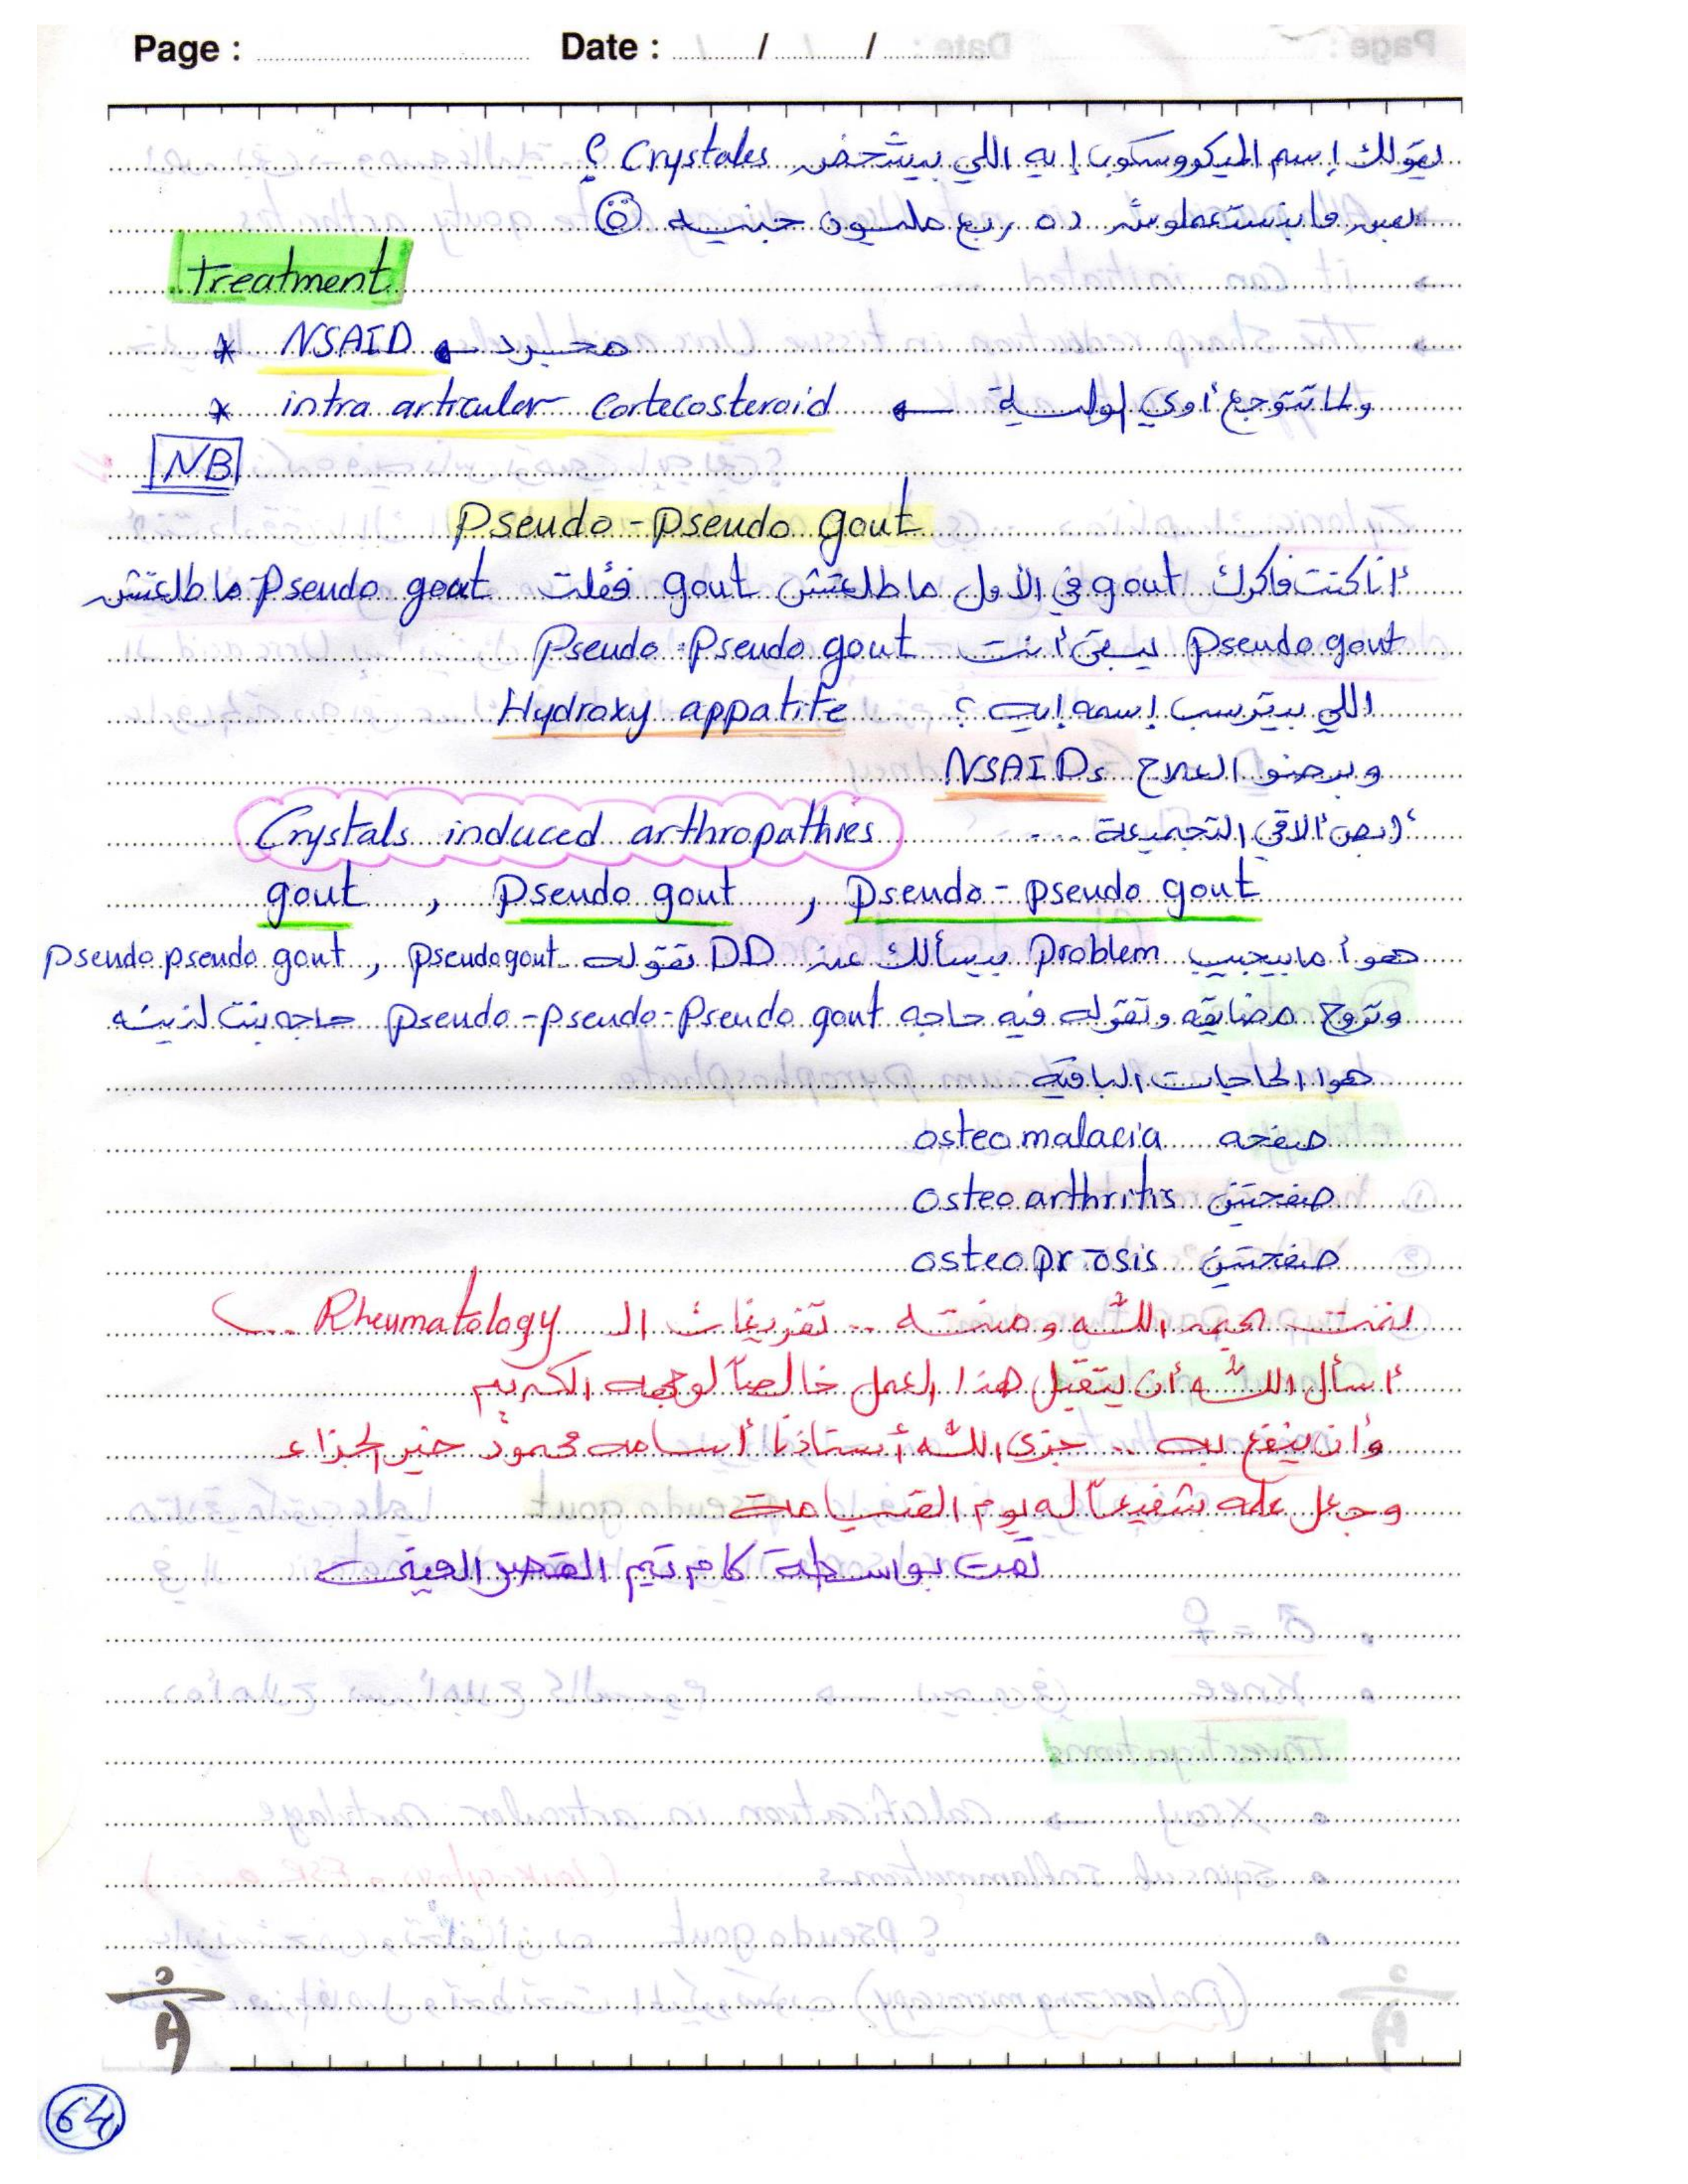 Page : Date : / /
يقولك إسم الميكروسكوب إيه اللي بيشخص Crystales ؟
بس مابنستعملوش ده ربع مليون جنيه
treatment
* NSAID مجرد
* intra articular Cortecosteroid ولما تتوجع أوي
NB
Pseudo - pseudo gout
أنا كنت فاكرك gout في الأول ما طلعتش gout فقلت Pseudo gout ما طلعتش
Pseudo gout يبقى أنت Pseudo - Pseudo gout
اللي بيترسب إسمه إيه ؟ Hydroxy appatite
وبرضو العلاج NSAIDs
أبص ألاقي التجميعة .... Crystals induced arthropathies
gout , Pseudo gout , Pseudo - pseudo gout
هو أما بيجيب Problem بيسألك عن DD تقوله pseudogout , pseudo pseudo gout
وتروح مضايقه وتقوله فيه حاجه Pseudo - pseudo - Pseudo gout حاجه بنت لذينه
هو الحاجات الباقية
صفحه osteomalacia
صفحتين osteoarthritis
صفحتين osteoprosis
تمت بحمد الله ومنته .. تفريغات الـ Rheumatology ..
أسأل الله أن يتقبل هذا العمل خالصاً لوجهه الكريم
وأن ينفع به .. جزى الله أستاذنا أسامه محمود خير الجزاء
وجعل علمه شفيعاً له يوم القيامة
تمت بواسطة كام تيم القصر العيني
64